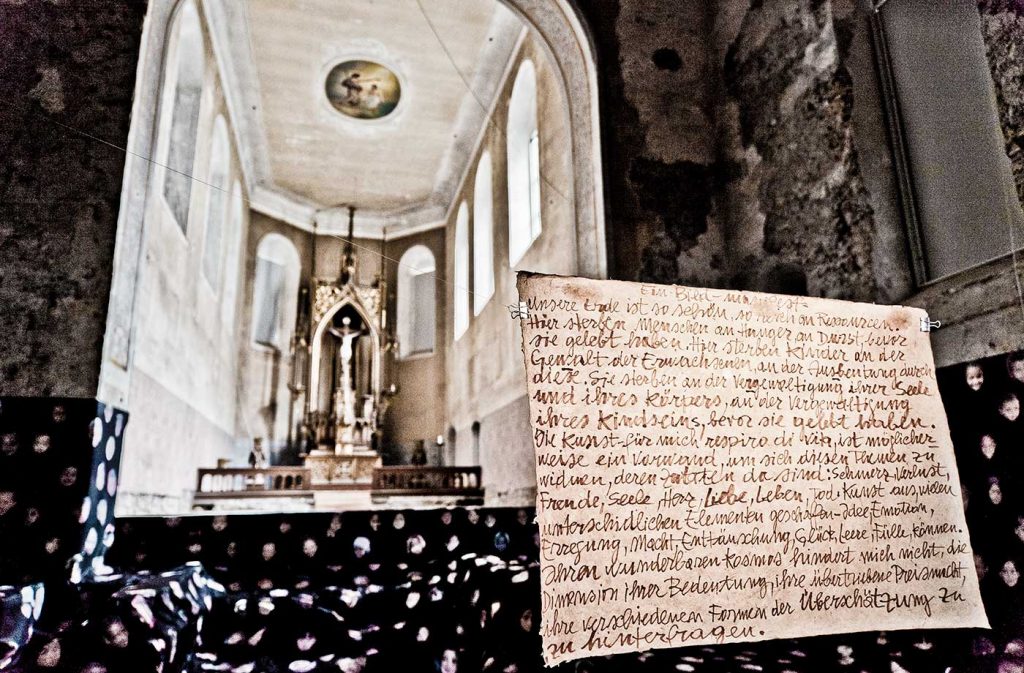 Ein Bled-manifest
unsere Erde ist so schön, so reich an Ressourcen.
Hier sterben Menschen an Hunger an Durst, bevor
sie gelebt haben. Hier sterben Kinder an der
Gewalt der Erwachsenen, an der Ausbeutung durch
diese. Sie sterben an der Vergewaltigung ihrer Seele
und ihres Körpers, an der Vergewaltigung
ihres Kindseins, bevor sie gelebt haben.
Die Kunst-für mich respiro di vita, ist möglicher
weise ein Vorwand, um sich diesen Themen zu
widmen, deren da sind: Schmerz, Verlust,
Freude, Seele, Herz, Liebe, Leben, Tod. Kunst aus vielen
unterschiedlichen Elementen geschaffen-Idee, Emotion,
Erregung, Macht, Enttäuschung, Glück, Leere, Fülle, Können.
Ihren wunderbaren Kosmos hindert mich nicht, die
Dimension ihrer Bedeutung, ihre übertriebene Preissucht,
ihre verschiedenen Formen der Überschätzung zu
zu hinterfragen.